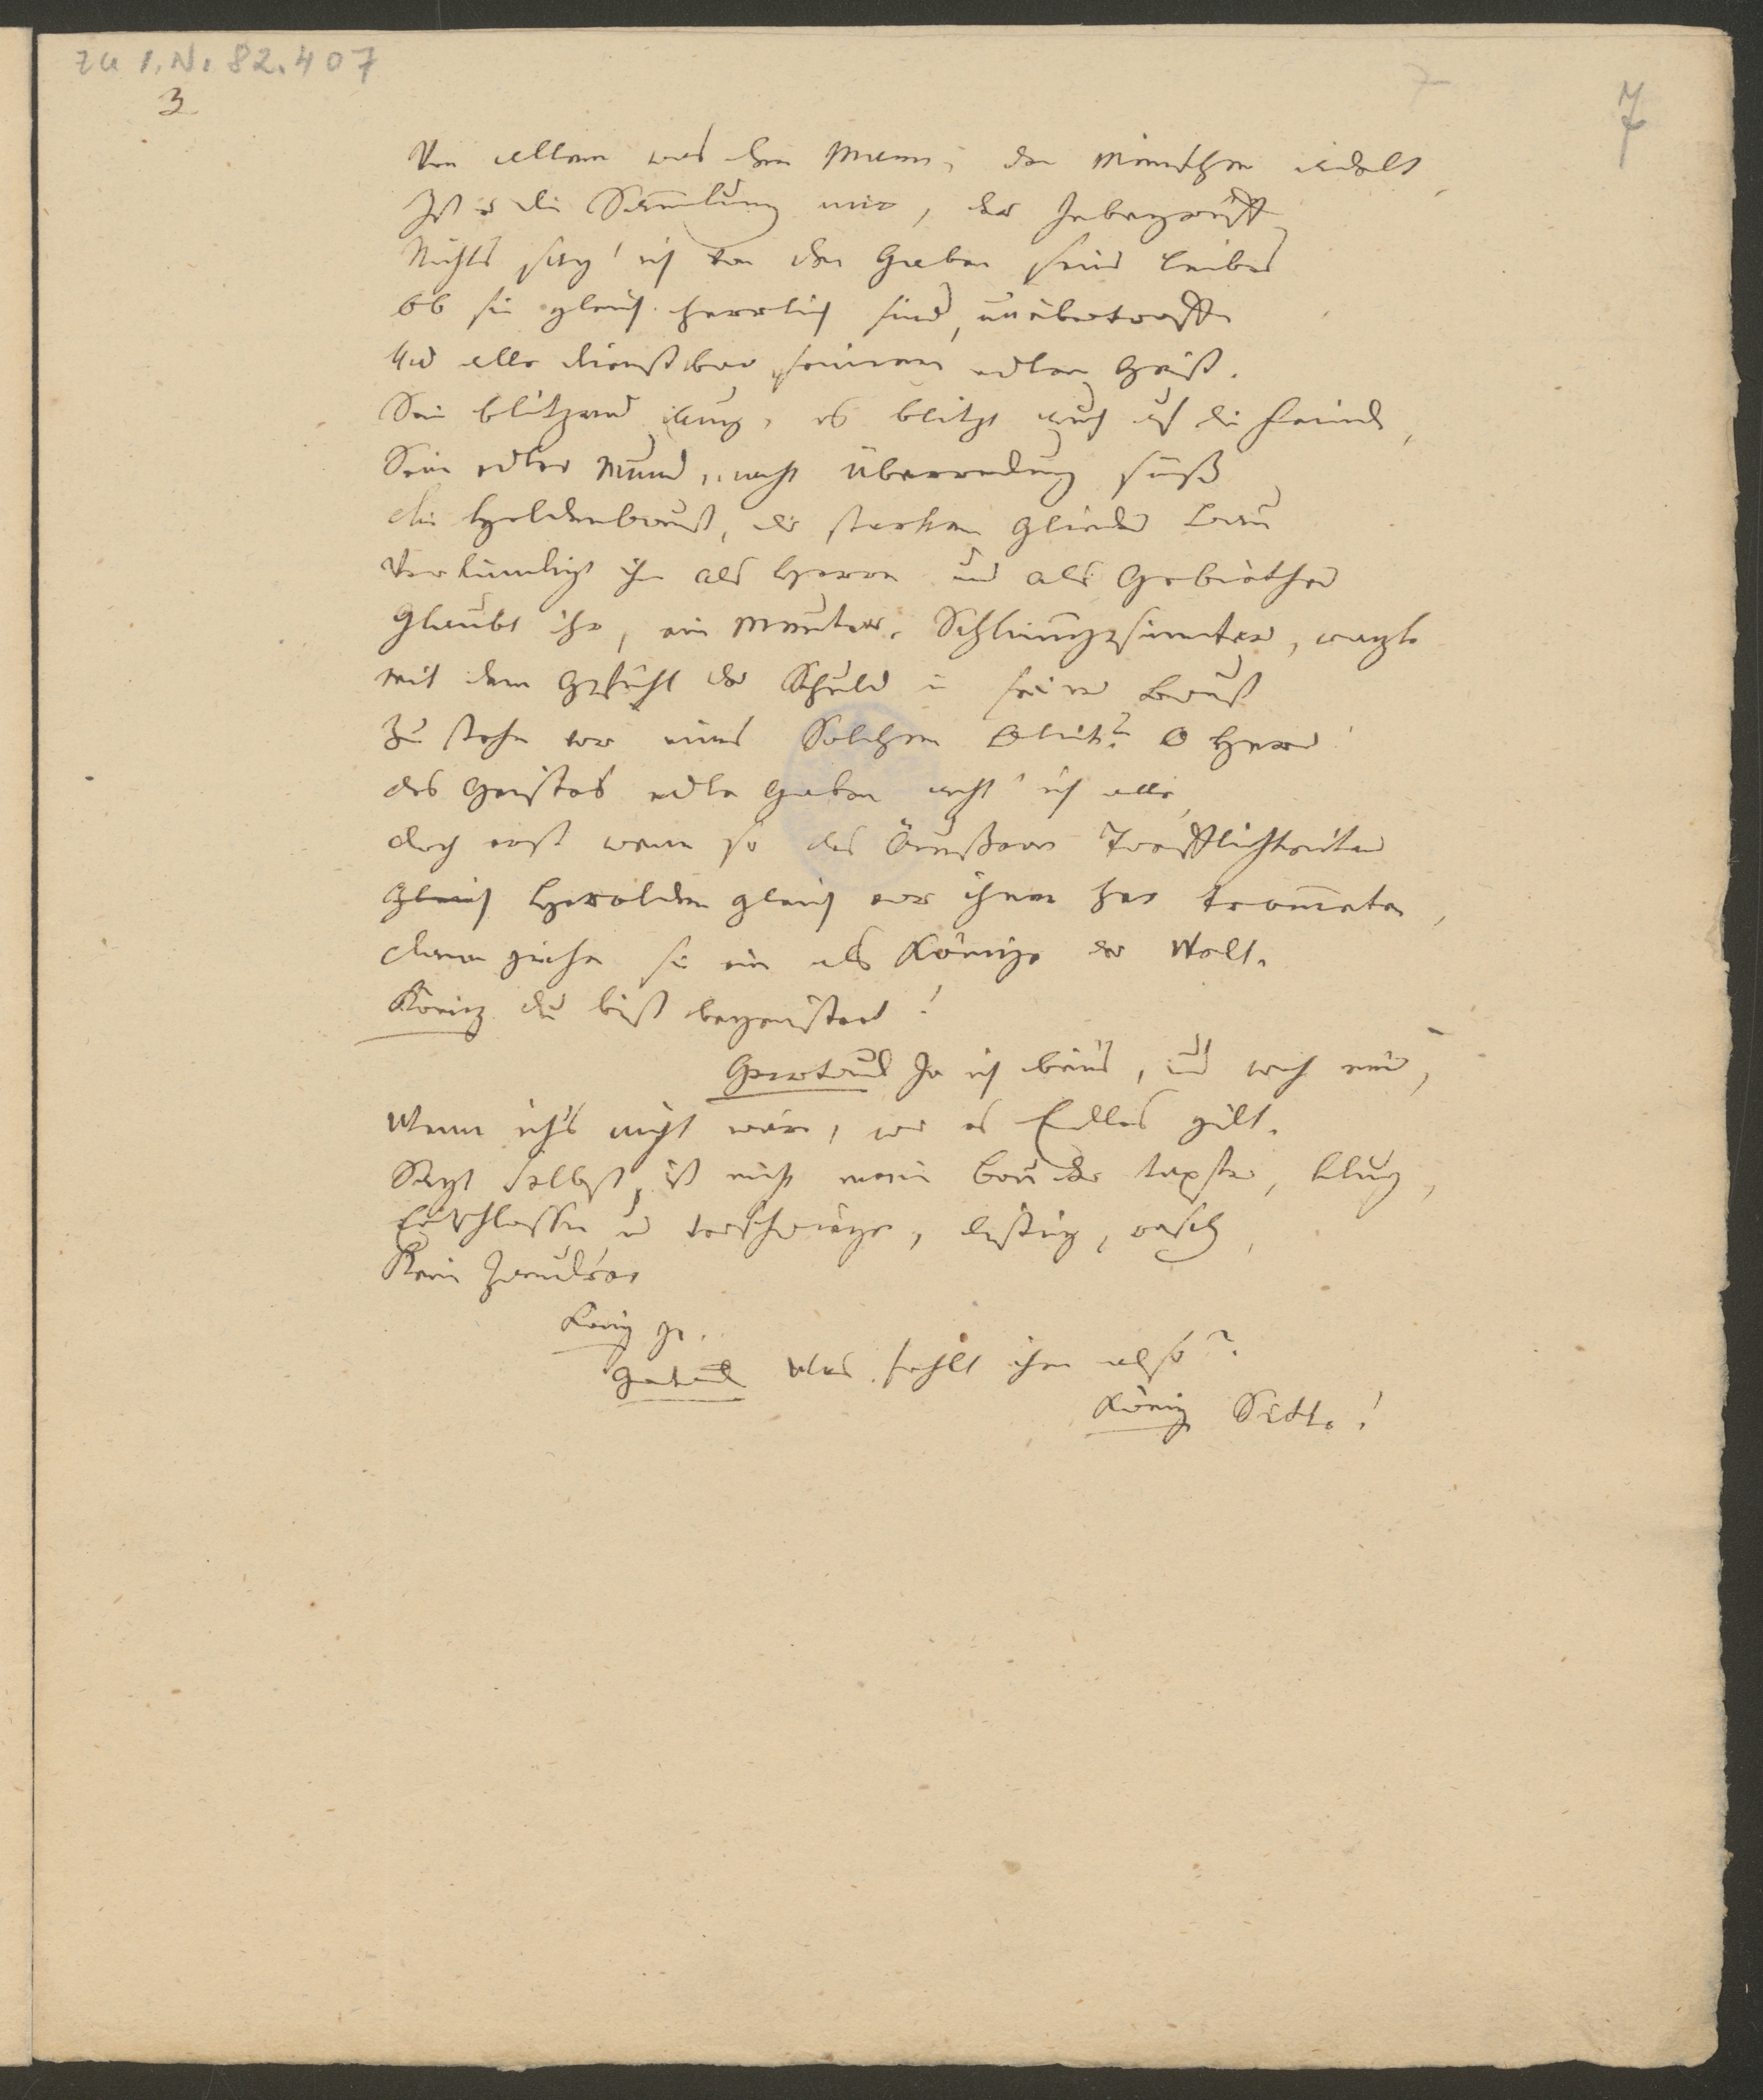 zu I.N. 82.407
3
7
7
Von allem was den Mann, den Menschen adelt,
Ist er die Sammlung mir, der Inbegriff
Nichts sag' ich von den Gaben seines Leibes
Ob sie gleich herrlich sind, unübertroffen
Und alle dienstbar seinem edlen Geist.
Sein blitzend Aug, es blitzt auch auf die Feinde,
Sein edler Mund, nicht Überredung süß
die Heldenbrust, der starken Glieder Bau
Verkündigt ihn als Herrn und als Gebiether
Glaubt ihr, ein Meuter, Schlimmgesinnter, wagte
mit dem Gefühl der Schuld in seiner Brust
Zu stehn vor eines Solchen Blick? O Herr!
des Geistes edle Gaben acht' ich alle,
doch erst wenn so des Äußern Trefflichkeiten
Gleich Herolden gleich vor ihnen her trommeten,
dann ziehn sie ein als Könige der Welt.
König du bist begeistert!
Gertrud Ja ich bins, und weh mir,
Wenn ichs nicht wäre, wo es Edles gilt.
Sagt selbst, ist nicht mein Bruder tapfer, klug,
Entschlossen und verschwiegen, listig, rasch,
Kein Zaudrer
König Ja.
Gertrud Was fehlt ihm also?
König Sitte!